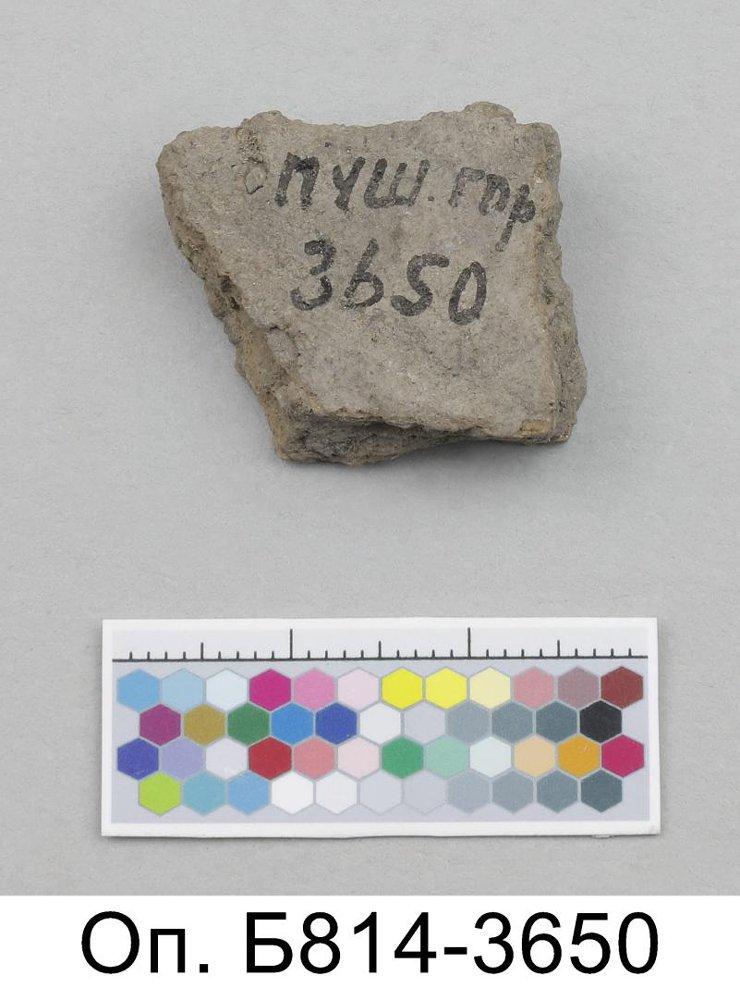 ПУШ. ГОР
3650
Оп. Б814-3650